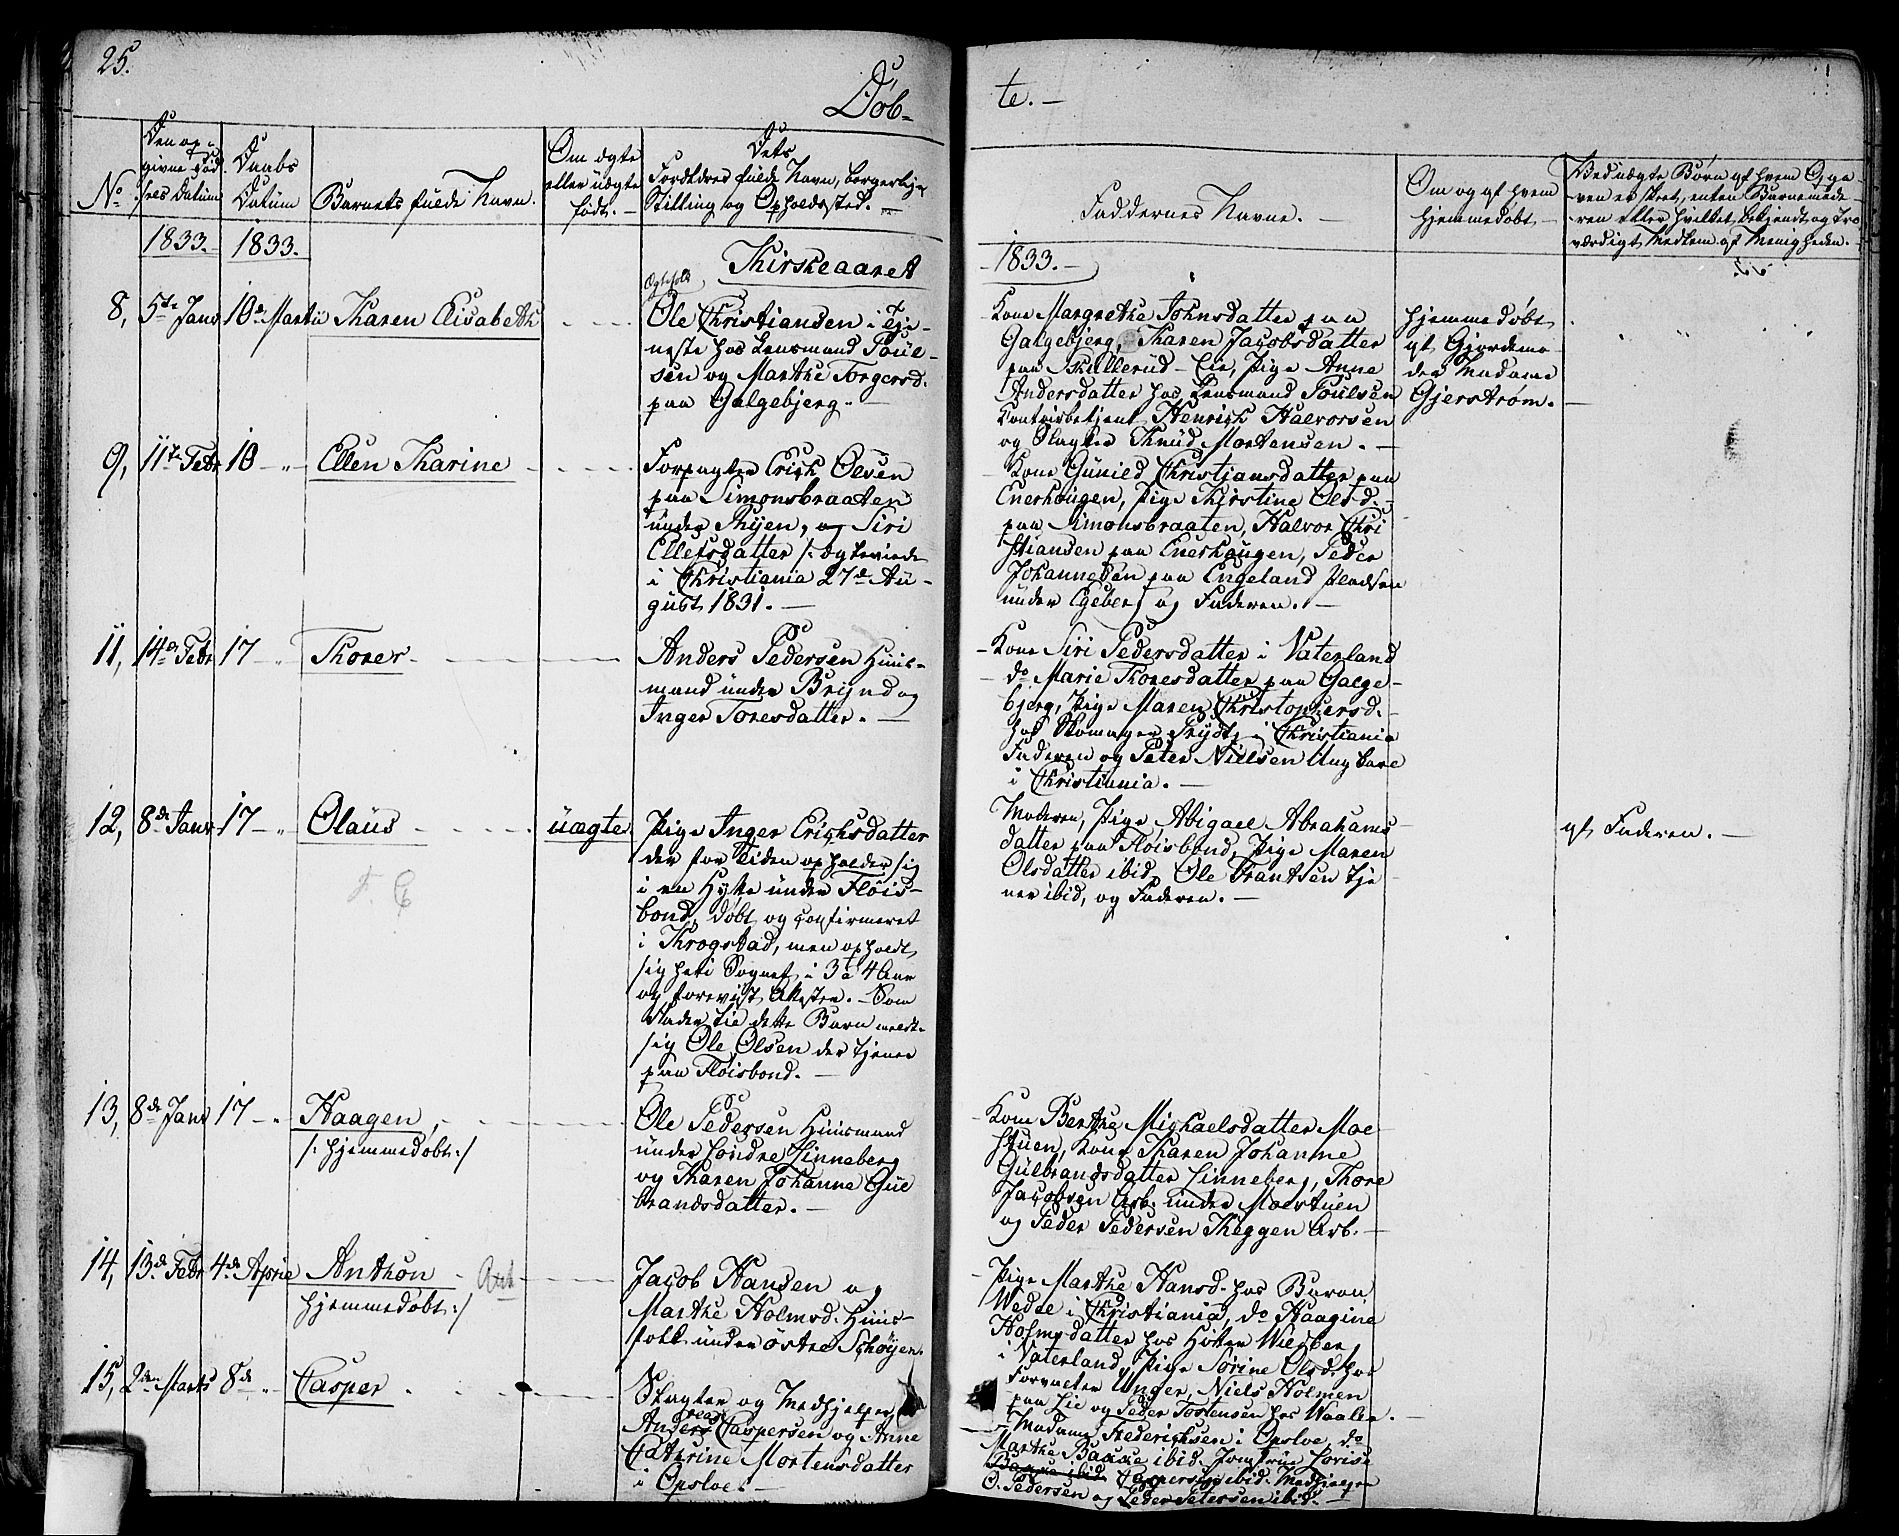 25.
Døb-
te. -
No
Den op-
givne Fød-
sels Datum
Daabs
Datum
Barnets fulde Navn.
Om ægte
eller uægte
født. -
Dets
Forældres fulde Navn, borgerlige
Stilling og Opholdssted. -
Faddernes Navne. -
Om og af hvem
hjemmedøbt -
Ved uægte Børn af hvem Opga-
ven er skeet, enten Barnemode-
ren eller hvilket bekjendt og tro-
værdigt Medlem af Menigheden. -
1833. -
1833.
Kirkeaaret
- 1833. -
8, 5te Janr 10de Martii Karen Elisabeth
Ægtefolk
Ole Christiansen i Tje-
neste hos Lensmand Poul-
sen og Marthe Torgersd.
paa Galgebjerg. -
Kone Margrethe Johnsdatter paa
Galgebjerg, Karen Jacobsdatter
paa Skullerud-Eie, Pige Anne
Andersdatter hos Lensmand Poulsen
Contoirbetjent Henrich Halvorsen
og Slagter Knud Mortensen. -
hjemmedøbt
af Gjordemo-
der Madame
Gjerstrøm. -
9, 11te Febr 10 - " - Ellen Karine
Forpagter Erich Olsen
paa Simonsbraaten
under Ryen, og Siri
Ellefsdatter /: ægteviede
i Christiania 27de Au-
gust 1831. -
- Kone Gunild Christiansdatter paa
Enerhaugen, Pige Kirstine Olsd.
paa Simonsbraaten, Halvor Chri
stiansen paa Enerhaugen, Peder
Johannesen paa Engeland Pladsen
under Egeberg og Faderen. -
11, 14de Febr 17 - " Thorer
Anders Pedersen Huus-
mand under Bryn og
Inger Toresdatter. -
- Kone Siri Pedersdatter i Vaterland
- do Marie Thoresdatter paa Galge-
bjerg, Pige Maren Christophersd.
hos Skomager Trydt i Christiania
Faderen og Peter Nielsen Ungkarl
i Christiania. -
12, 8de Janr 17 - " - Olaus
uægte
F. E
Pige Inger Erichsdatter
der for Tiden opholder sig
i en Hytte under Fløis-
bond, døbt og confirmeret
i Krogstad, men opholdt
sig her i Sognet i 3 a 4 Aar
og foreviist Attester. - Som
Fader til dette Barn meldte
sig Ole Olsen der tjener
paa Fløisbond. -
Moderen, Pige Abigael Abrahams-
datter paa Fløisbond, Pige Maren
Olsdatter ibid, Ole Frantsen tje
ner ibid, og Faderen. -
af Faderen. -
13, 8de Janr 17 - " Haagen,
/: hjemmedøbt :/
Ole Pedersen Huusmand
under søndre Linneberg
og Karen Johanne Gul
brandsdatter. -
- Kone Berthe Michaelsdatter Moe
stuen, Kone Karen Johanne
Gulbrandsdatter Linneberg, Thore
Jacobsen Arb. under Moestuen
og Peder Pedersen Kæggen Arb. -
14, 13de Febr 4de April Anthon
hjemmedøbt :/
Jacob Hansen og
Marthe Holmsd. Huus-
folk under østre Schøyen.
- Pige Marthe Hansd. hos Baron
Wedel i Christiania, do Haagine
Holmsdatter hos Høker Wiegber
i Vaterland, Pige Sørine Olsd. hos
Forvalter Unger, Niels Holmen
paa Lie og Peder Tostensen hos Waaler. -
15, 2den Marts 8de - " Casper
Slagter og Medhjelper
Andreas Caspersen og Anne
Cathrine Mortensdatter
i Opsloe. -
- Madame Frederichsen i Opsloe, do
Marthe Bakke ibid. Jomfrue Lovise
Caspersen ibid. Medhjelper
O. Pedersen og Peder Petersen ibid. -